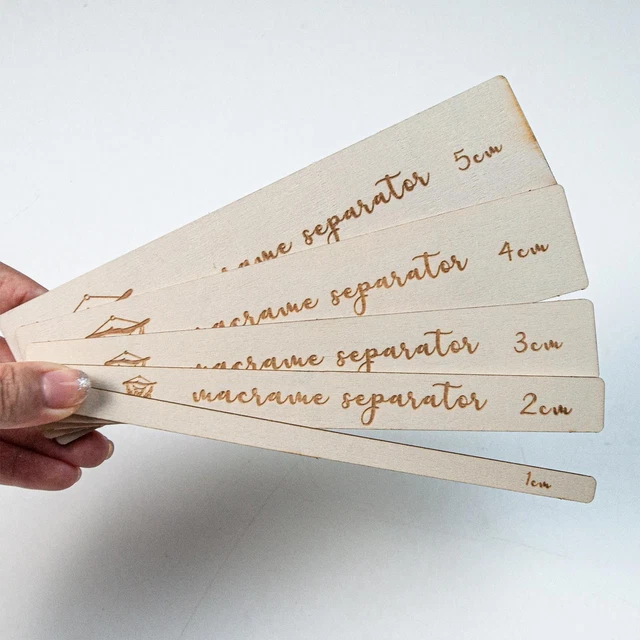 separator 5cm
macrame separator 4cm
macrame separator 3cm
macrame separator 2cm
1cm